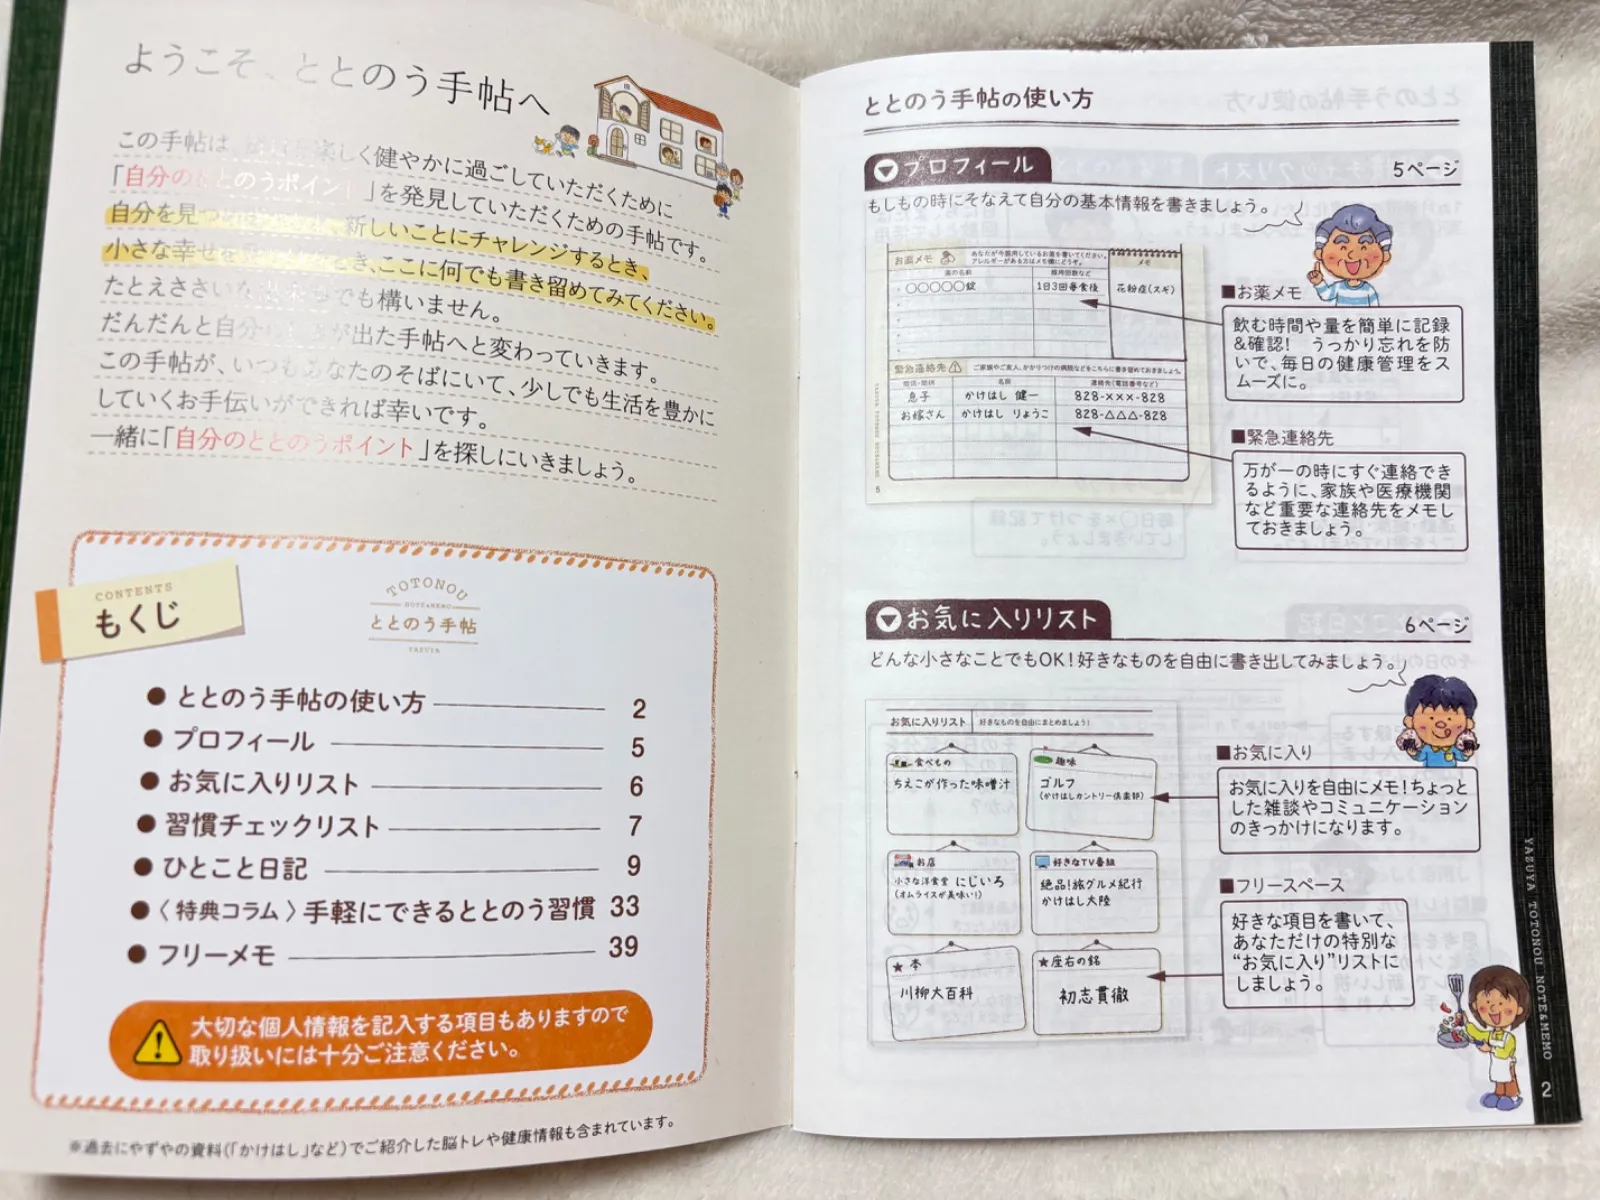 ようこそ、ととのう手帖へ
この手帖は、 楽しく健やかに過ごしていただくために
「自分のととのうポイント」を発見していただくための手帖です。
自分を見つ 新しいことにチャレンジするとき、
小さな幸せを とき、ここに何でも書き留めてみてください。
たとえささいな でも構いません。
だんだんと自分 が出た手帖へと変わっていきます。
この手帖が、いつもあなたのそばにいて、少しでも生活を豊かに
していくお手伝いができれば幸いです。
一緒に「自分のととのうポイント」を探しにいきましょう。
CONTENTS
もくじ
TOTONOU
NOTE&MEMO
ととのう手帖
YAZUYA
●ととのう手帖の使い方 2
●プロフィール 5
●お気に入りリスト 6
●習慣チェックリスト 7
●ひとこと日記 9
●〈特典コラム〉手軽にできるととのう習慣 33
●フリーメモ 39
大切な個人情報を記入する項目もありますので
取り扱いには十分ご注意ください。
※過去にやずやの資料(「かけはし」など)でご紹介した脳トレや健康情報も含まれています。
ととのう手帖の使い方
プロフィール 5ページ
もしもの時にそなえて自分の基本情報を書きましょう。
お薬メモ あなたが今服用しているお薬を書いてください。
アレルギーがある方はメモ欄にどうぞ。
メモ
薬の名前 服用回数など
○○○○○錠 1日3回毎食後 花粉症(スギ)
緊急連絡先 ご家族やご友人、かかりつけの病院などをこちらに書き留めておきましょう。
関係・間柄 名前 連絡先(電話番号など)
息子 かけはし 健一 828-×××-828
お嫁さん かけはし りょうこ 828-△△△-828
5
■お薬メモ
飲む時間や量を簡単に記録
&確認! うっかり忘れを防
いで、毎日の健康管理をス
ムーズに。
■緊急連絡先
万が一の時にすぐ連絡でき
るように、家族や医療機関
など重要な連絡先をメモし
ておきましょう。
お気に入りリスト 6ページ
どんな小さなことでもOK!好きなものを自由に書き出してみましょう。
お気に入りリスト 好きなものを自由にまとめましょう!
食べもの
ちえこが作った味噌汁
趣味
ゴルフ
(かけはしカントリー倶楽部)
お店
小さな洋食堂 にじいろ
(オムライスが美味い!)
好きなTV番組
絶品!旅グルメ紀行
かけはし大陸
★本
川柳大百科
★座右の銘
初志貫徹
■お気に入り
お気に入りを自由にメモ!ちょっと
した雑談やコミュニケーション
のきっかけになります。
■フリースペース
好きな項目を書いて、
あなただけの特別な
“お気に入り”リストに
しましょう。
YAZUYA TOTONOU NOTE&MEMO
2